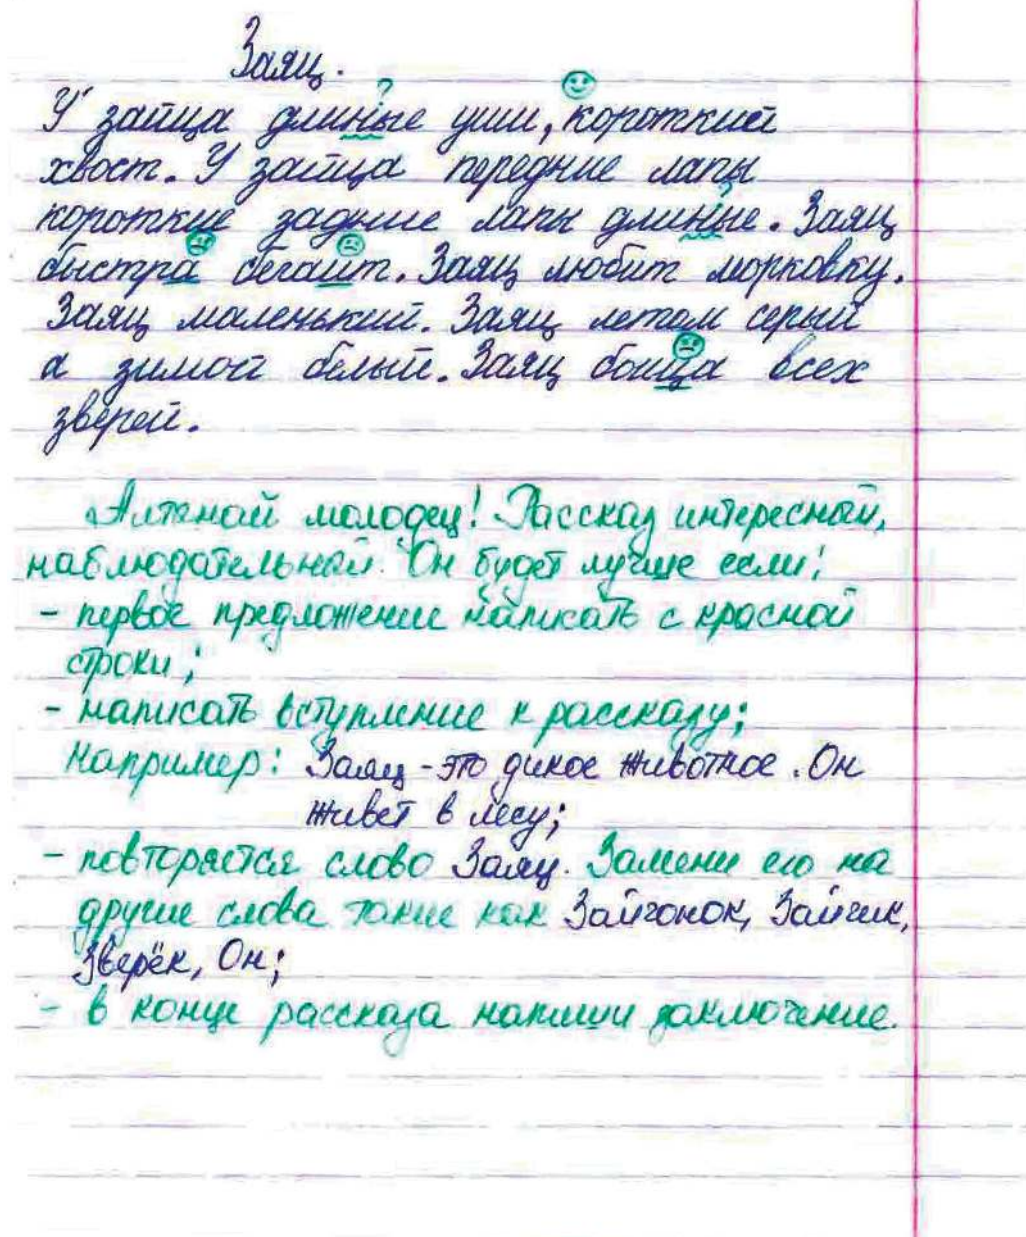 Заяц.
У зайца длиные уши, короткий
хвост. У зайца передние лапы
короткие задние лапы длиные. Заяц
быстра бегаит. Заяц любит морковку.
Заяц маленький. Заяц летом серый
а зимой белый. Заяц боица всех
зверей.
Алтынай молодец! Рассказ интересный,
наблюдательный. Он будет лучше если:
- первое предложение написать с красной
строки;
- написать вступление к рассказу;
Например: Заяц - это дикое животное. Он
живет в лесу;
- повторяется слово Заяц. Замени его на
другие слова такие как Зайчонок, Зайчик,
Зверёк, Он;
- в конце рассказа напиши заключение.